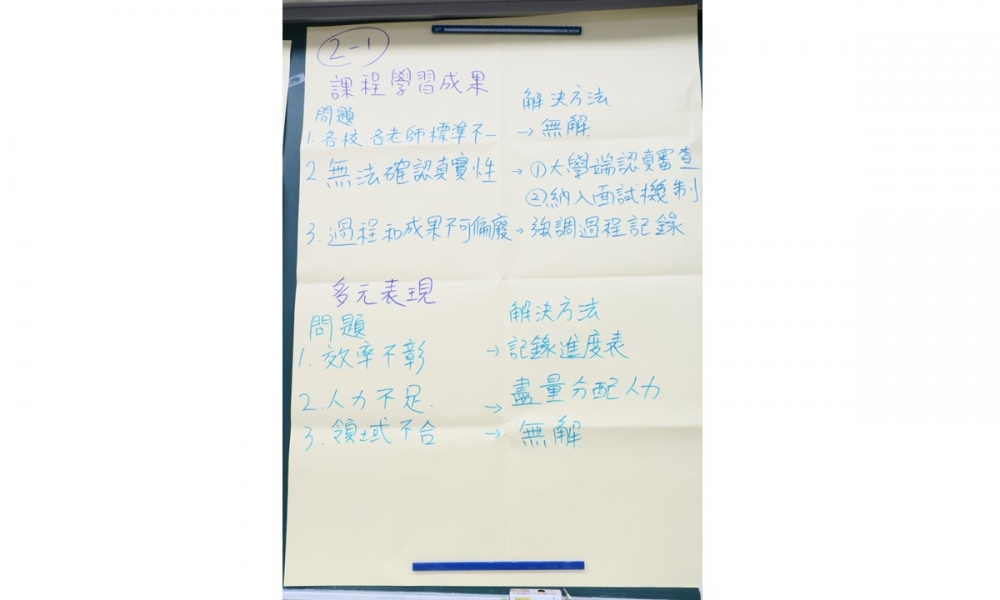 2-1
課程學習成果
問題 解決方法
1. 各校、各老師標準不一 → 無解
2. 無法確認真實性 → ①大學端認真審查
②納入面試機制
3. 過程和成果不可偏廢 → 強調過程記錄
多元表現
問題 解決方法
1. 效率不彰 → 記錄進度表
2. 人力不足. → 盡量分配人力
3. 領域不合 → 無解